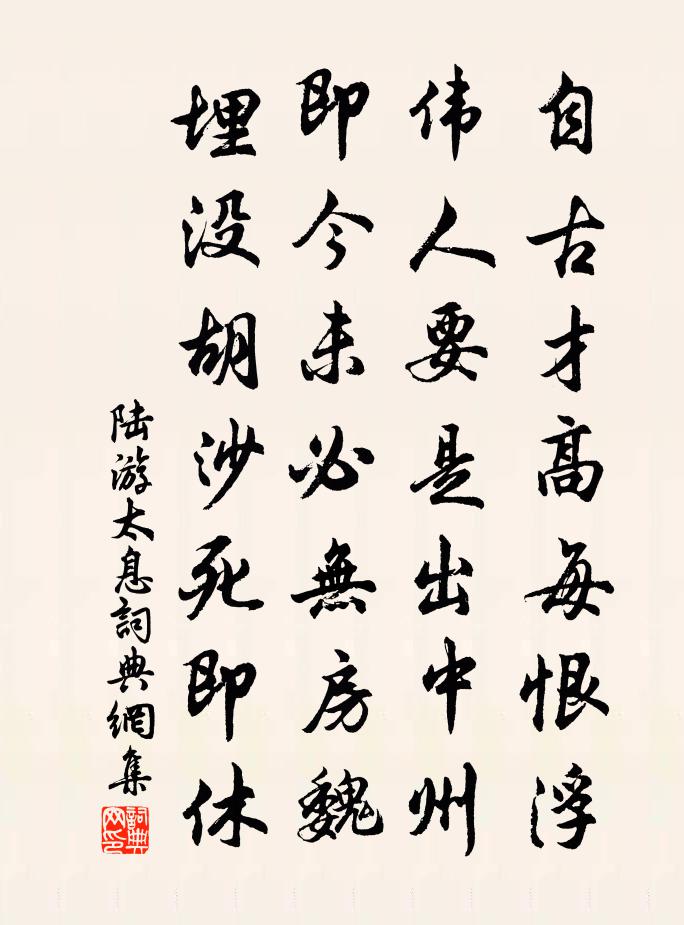 自古才高每恨浮
伟人要是出中州
即今未必無房魏
埋没胡沙死即休
陆游太息詞典網集
詞典网印